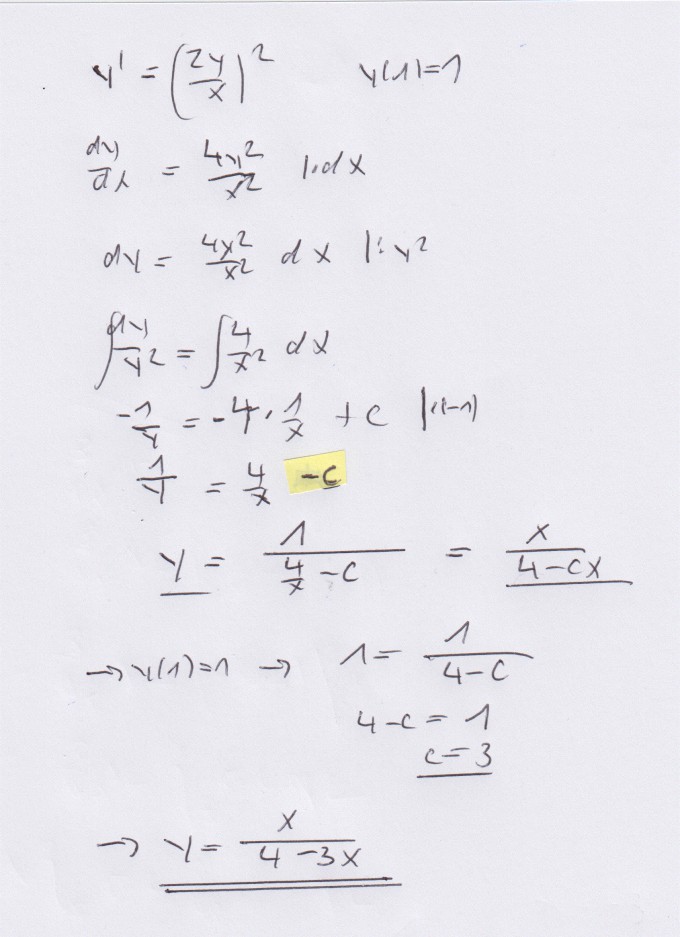 y' = (2y/x)² y(1)=1
dy/dx = 4y²/x² |·dx
dy = 4y²/x² dx |:y²
∫dy/y² = ∫4/x² dx
-1/y = -4·1/x + c |·(-1)
1/y = 4/x -c
y = 1/(4/x - c) = x/(4-cx)
→ y(1)=1 → 1 = 1/(4-c)
4-c = 1
c=3
→ y = x/(4-3x)